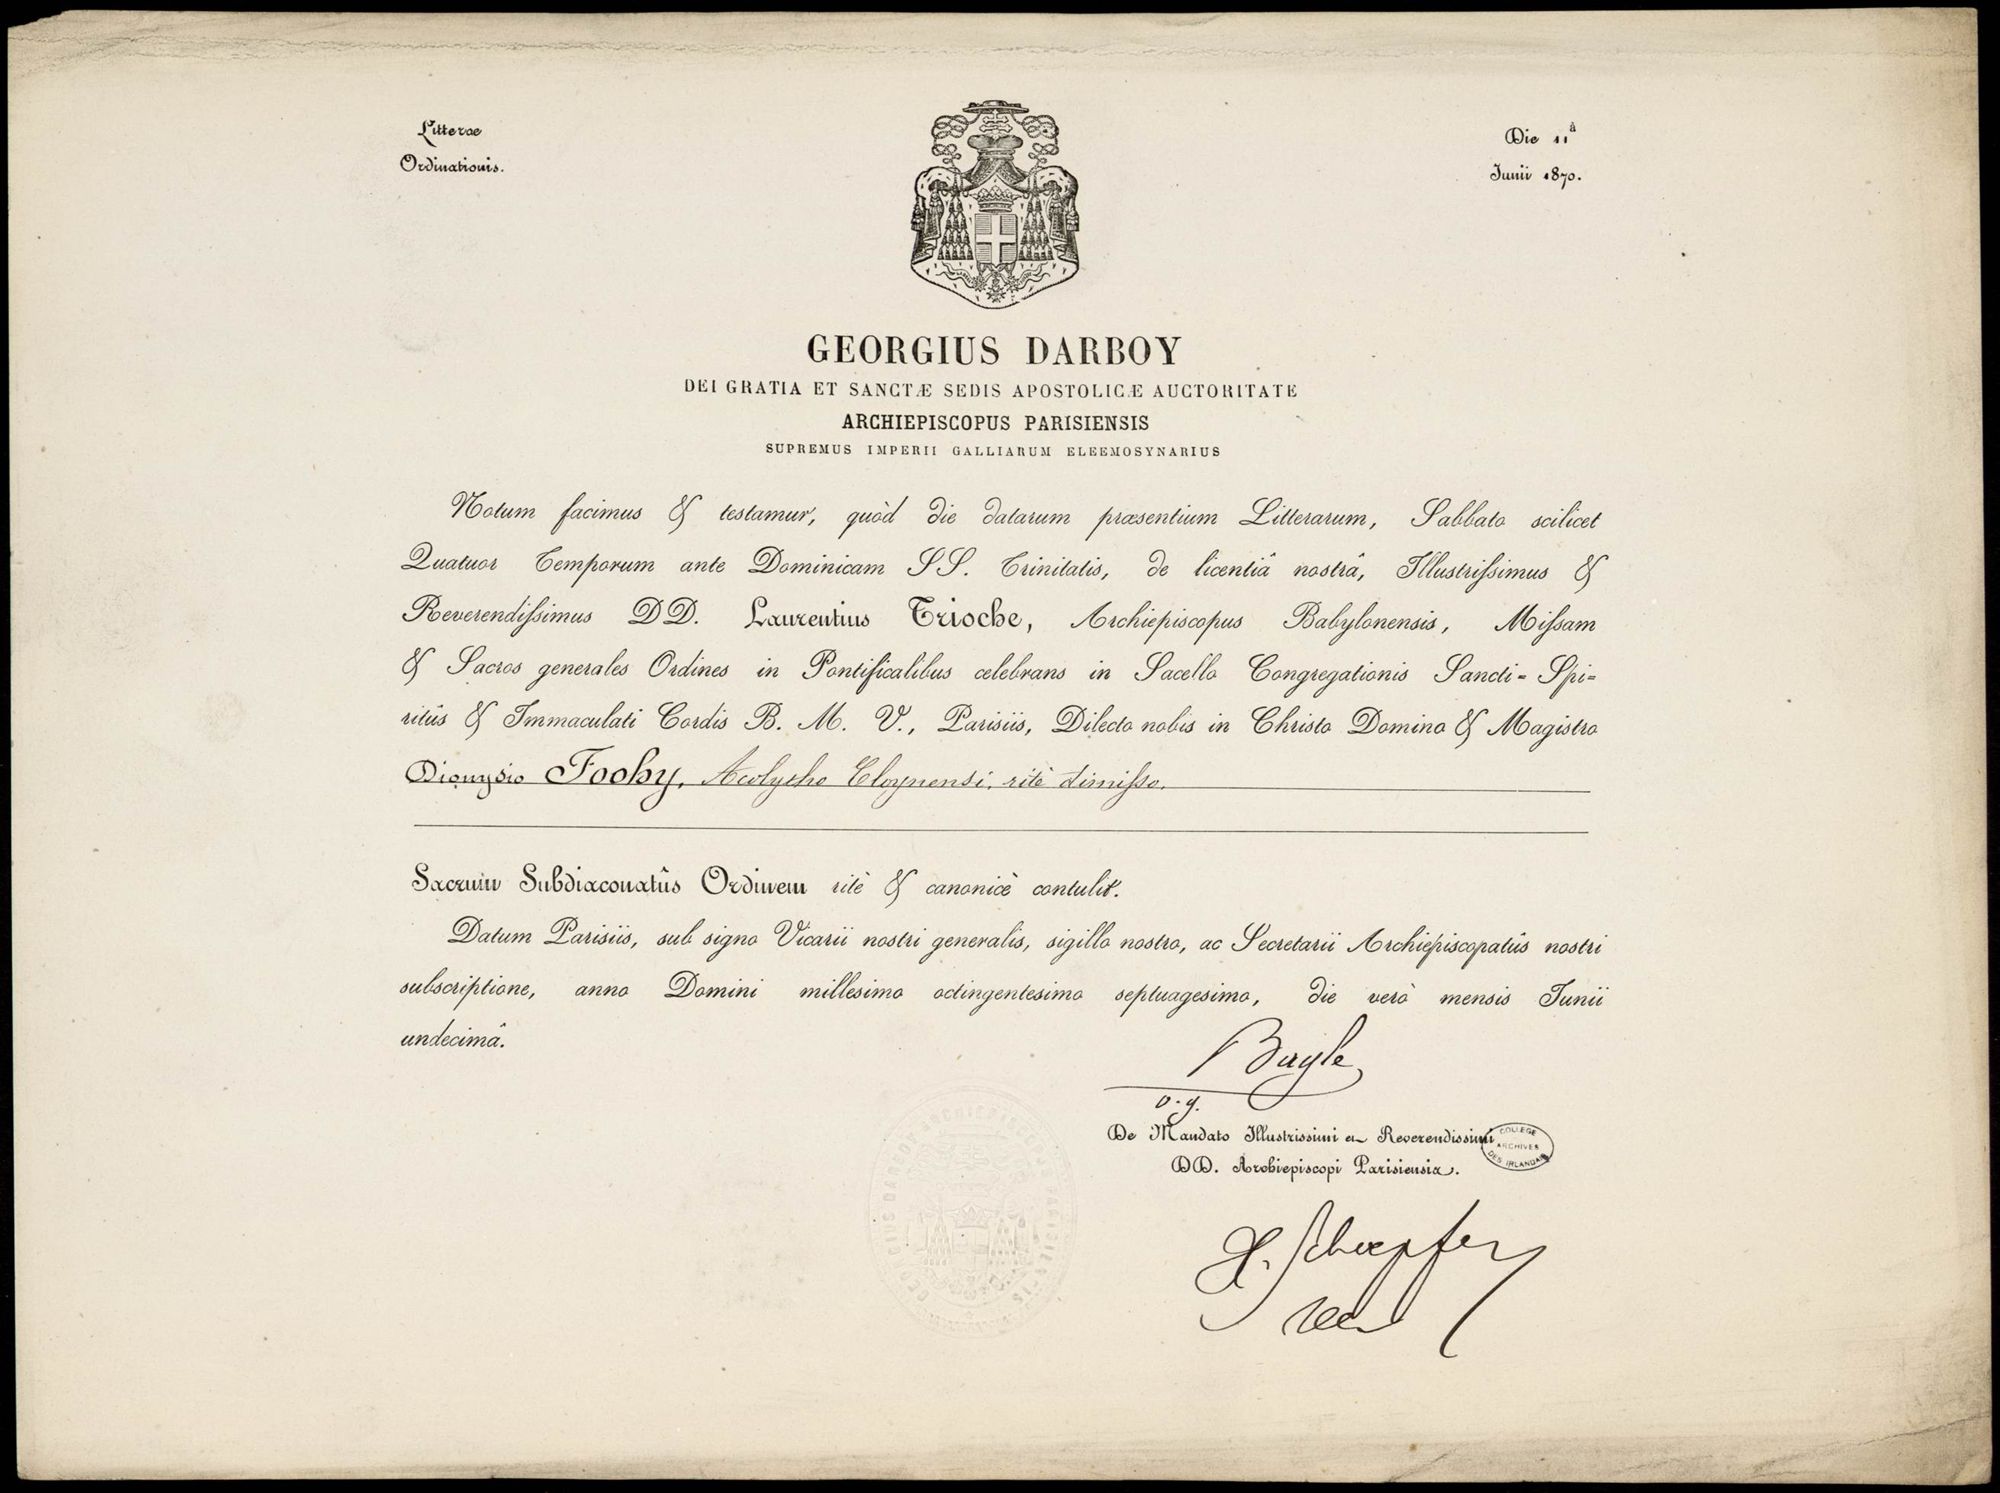 Litterae
Ordinationis.
Die 11â
Junii 1870.
GEORGIUS DARBOY
DEI GRATIA ET SANCTÆ SEDIS APOSTOLICÆ AUCTORITATE
ARCHIEPISCOPUS PARISIENSIS
SUPREMUS IMPERII GALLIARUM ELEEMOSYNARIUS
Notum facimus & testamur, quòd die datarum præsentium Litterarum, Sabbato scilicet
Quatuor Temporum ante Dominicam SS. Trinitatis, de licentiâ nostrâ, Illustrissimus &
Reverendissimus DD. Laurentius Trioche, Archiepiscopus Babylonensis, Missam
& Sacros generales Ordines in Pontificalibus celebrans in Sacello Congregationis Sancti-Spi-
ritûs & Immaculati Cordis B. M. V., Parisiis, Dilecto nobis in Christo Domino & Magistro
Dionysio Foohy, Acolytho Cloynensi, ritè dimisso.
Sacrum Subdiaconatûs Ordinem ritè & canonicè contulit.
Datum Parisiis, sub signo Vicarii nostri generalis, sigillo nostro, ac Secretarii Archiepiscopatûs nostri
subscriptione, anno Domini millesimo octingentesimo septuagesimo, die verò mensis Junii
undecimâ.
Bayle
v.g.
De Mandato Illustrissimi et Reverendissimi
DD. Archiepiscopi Parisiensis.
COLLEGE
ARCHIVES
DES IRLANDAIS
GEORGIUS DARBOY ARCHIEPISCOPUS PARISIENSIS
H. Schoepfer